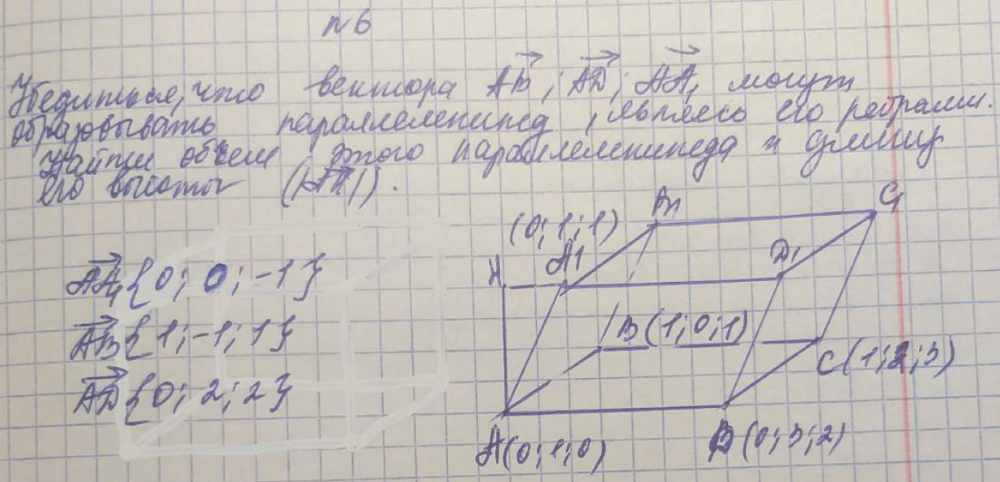 n 6
Убедиться, что вектора AB, AD, AA₁ могут
образовывать параллелепипед, являясь его ребрами.
Найти объем этого параллелепипеда и длину
его высоты (|AH|).
B₁
C₁
(0; 1; 1)
A₁
D₁
H
AA₁ {0; 0; -1}
AB {1; -1; 1}
B (1; 0; 1)
C (1; 2; 3)
AD {0; 2; 2}
A (0; 1; 0)
D (0; 3; 2)